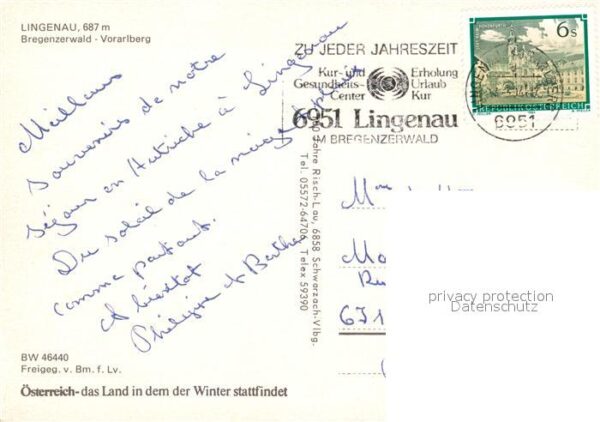 LINGENAU, 687 m
Bregenzerwald - Vorarlberg
Meilleurs
souvenirs de notre
séjour en Autriche à Lingenau
Du soleil de la neige
comme partout.
A bientôt
Philippe
BW 46440
Freigeg. v. Bm. f. Lv.
Österreich-das Land in dem der Winter stattfindet
Jahre Risch-Lau, 6858 Schwarzach-Vlbg.
Tel. 05572-64706, Telex 59390
ZU JEDER JAHRESZEIT
Kur- und Gesundheits- Center
Erholung Urlaub Kur
6951 Lingenau
IM BREGENZERWALD
6 S
REPUBLIK ÖSTERREICH
6951
671
privacy protection
Datenschutz